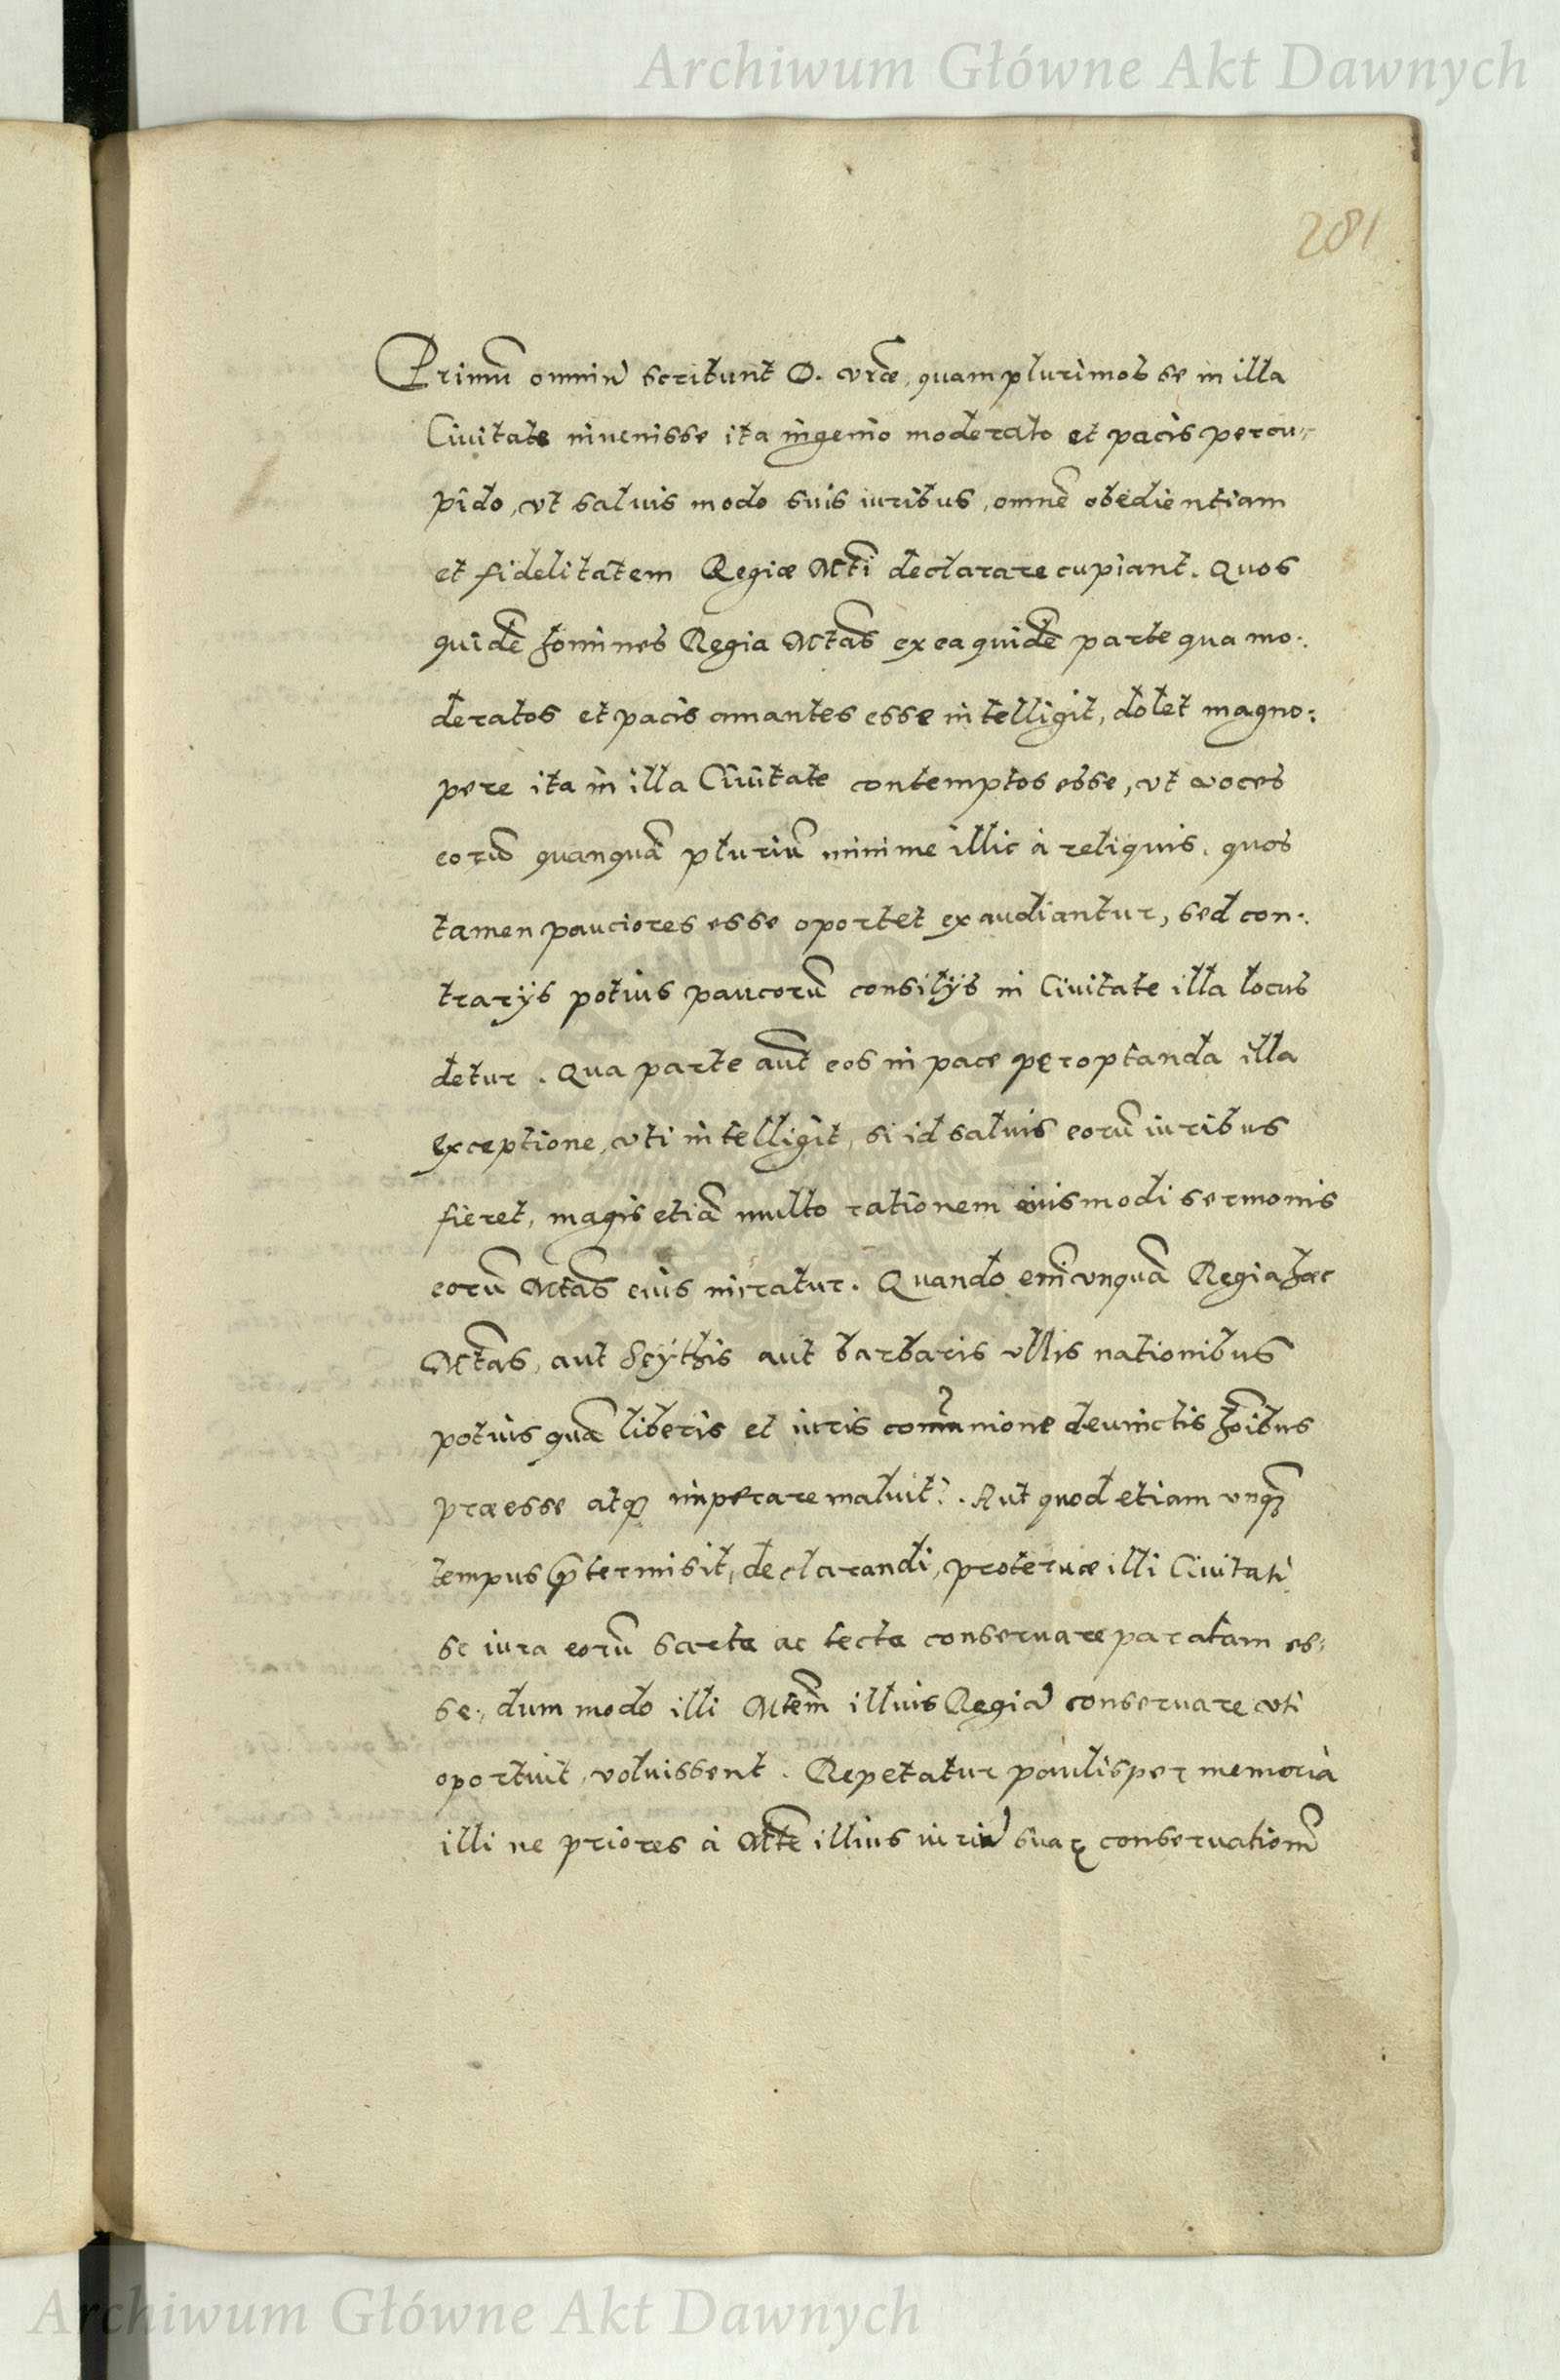 Archiwum Główne Akt Dawnych
281
Primũ omniũ scribunt D. vrãe, quam plurimos se in illa
Ciuitate inuenisse ita ingenio moderato et pacis percu-
pido, vt saluis modo suis iuribus, omnẽ obedientiam
et fidelitatem Regiæ Mti declarare cupiant. Quos
quidẽ homines Regia Mtãs ex ea quidẽ parte qua mo-
deratos et pacis amantes esse intelligit, dolet magno-
pere ita in illa Ciuitate contemptos esse, vt voces
eorũ quanquã pluriũ minime illic à reliquis, quos
tamen pauciores esse oportet exaudiantur, sed con-
trarijs potius paucorũ consilijs in Ciuitate illa locus
detur. Qua parte aũt eos in pace peroptanda illa
exceptione, vti intelligit, si id saluis eorũ iuribus
fieret, magis etiã multo rationem eiusmodi sermonis
eorũ Mtãs eius miratur. Quando enĩ vnquã Regia hæc
Mtãs, aut Scÿthis aut barbaris vllis nationibus
potius quã liberis et iuris comunione deuinctis hõibus
præesse atq3 imperare maluit?. Aut quod etiam vnq3
tempus p̃termisit, declarandi, proteruæ illi Ciuitati
se iura eorũ sarta ac tecta conseruare paratam es-
se, dum modo illi Mtem̃ illius Regiã conseruare vti
oportuit, voluissent. Repetatur paulisper memoria
illi ne priores à Mte illius iuriũ suaꝝ conseruationẽ
Archiwum Główne Akt Dawnych